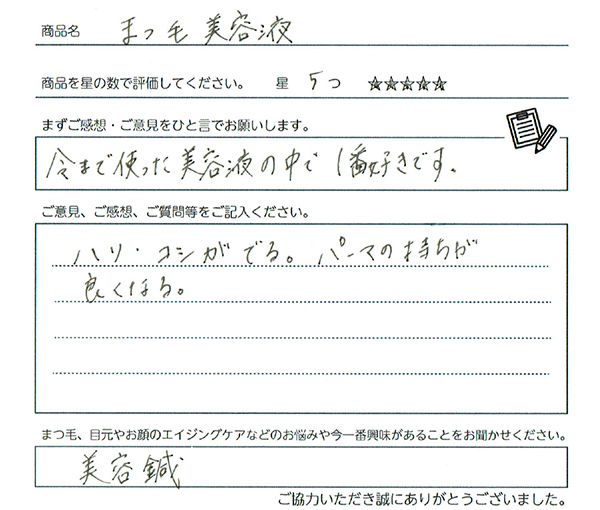 商品名 まつ毛美容液
商品を星の数で評価してください。 星 5つ ☆☆☆☆☆
まずご感想・ご意見をひと言でお願いします。
今まで使った美容液の中で1番好きです。
ご意見、ご感想、ご質問等をご記入ください。
ハリ・コシがでる。パーマの持ちが
良くなる。
まつ毛、目元やお顔のエイジングケアなどのお悩みや今一番興味があることをお聞かせください。
美容鍼
ご協力いただき誠にありがとうございました。